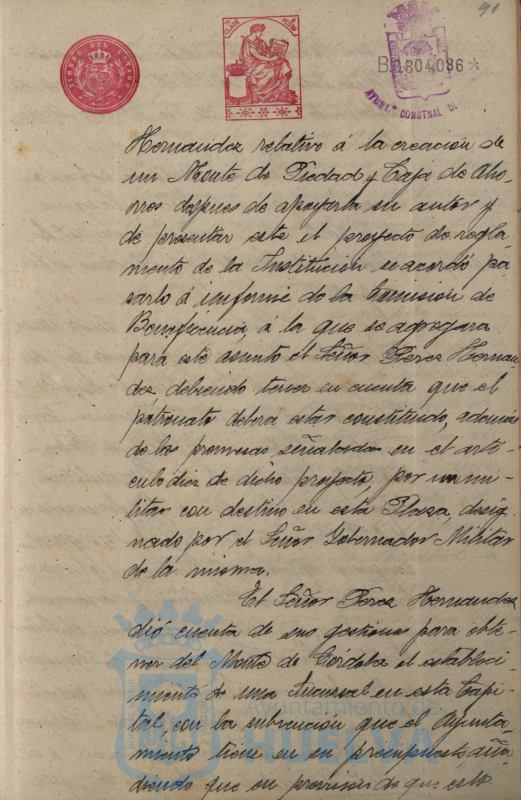 91
TIMBRE DEL ESTADO
B.0.804.036*
AYUNT.º CONSTNAL DE
Hernandez relativo á la creacion de
un Monte de Piedad y Caja de Aho-
rros despues de apoyarla su autor y
de presentar este el proyecto de regla-
mento de la Institucion se acordó pa-
sarlo á informe de la Comision de
Beneficencia, á la que se agregara
para este asunto el Señor Perez Hernan-
dez, debiendo tener en cuenta que el
patronato deberá estar constituido, ademas
de las personas señaladas en el arti-
culo diez de dicho proyecto, por un mi-
litar con destino en esta Plaza, desig-
nado por el Señor Gobernador Militar
de la misma.
El Señor Perez Hernandez
dió cuenta de sus gestiones para obte-
ner del Monte de Córdoba el estableci-
miento de una Sucursal en esta Capi-
tal, con la subvencion que el Ayunta-
miento tiene en su presupuesto aña-
diendo que en prevision de que esto
Ayuntamiento de
HUELVA